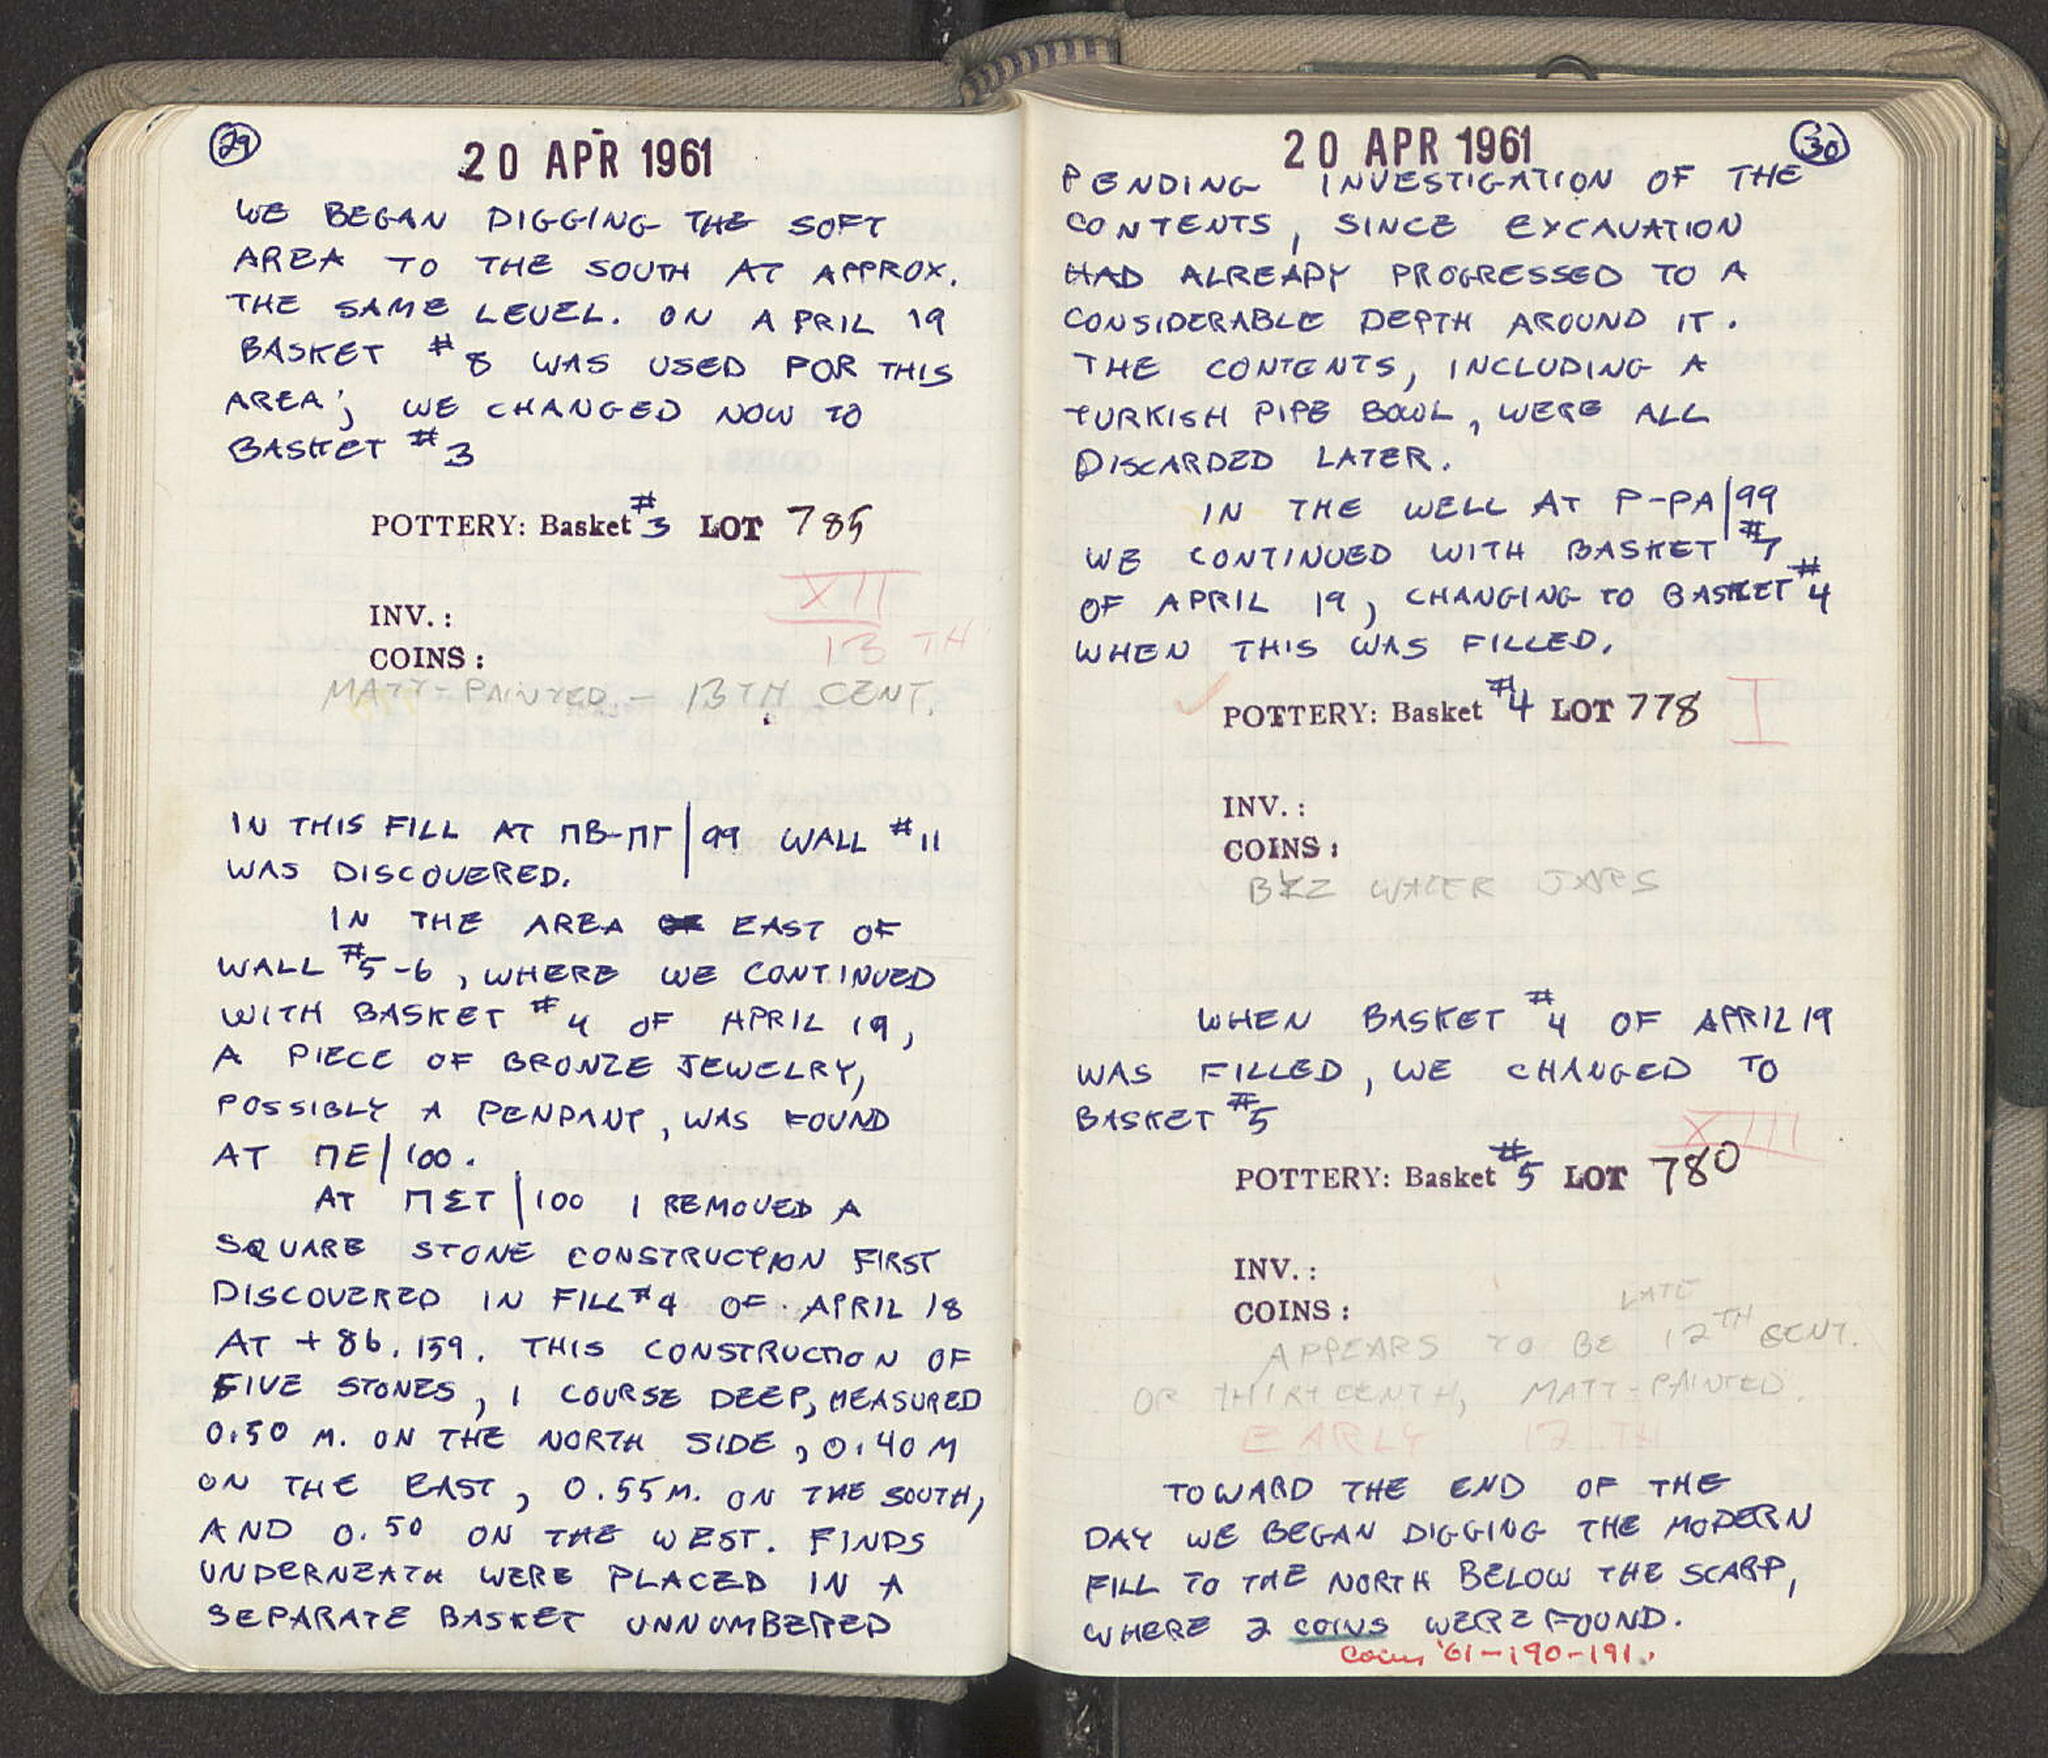 29
20 APR 1961
WE BEGAN DIGGING THE SOFT
AREA TO THE SOUTH AT APPROX.
THE SAME LEVEL. ON APRIL 19
BASKET #8 WAS USED FOR THIS
AREA; WE CHANGED NOW TO
BASKET #3
POTTERY: Basket #3 LOT 785
XII
INV.:
13 TH
COINS:
MATT-PAINTED - 13TH CENT.
IN THIS FILL AT ΠΒ-ΠΓ|99 WALL #11
WAS DISCOVERED.
IN THE AREA EAST OF
WALL #5-6, WHERE WE CONTINUED
WITH BASKET #4 OF APRIL 19,
A PIECE OF BRONZE JEWELRY,
POSSIBLY A PENDANT, WAS FOUND
AT ΠΕ|100.
AT ΠΣΤ|100 I REMOVED A
SQUARE STONE CONSTRUCTION FIRST
DISCOVERED IN FILL #4 OF APRIL 18
AT +86.159. THIS CONSTRUCTION OF
FIVE STONES, 1 COURSE DEEP, MEASURED
0.50 M. ON THE NORTH SIDE, 0.40 M
ON THE EAST, 0.55 M. ON THE SOUTH,
AND 0.50 ON THE WEST. FINDS
UNDERNEATH WERE PLACED IN A
SEPARATE BASKET UNNUMBERED
30
20 APR 1961
PENDING INVESTIGATION OF THE
CONTENTS, SINCE EXCAVATION
HAD ALREADY PROGRESSED TO A
CONSIDERABLE DEPTH AROUND IT.
THE CONTENTS, INCLUDING A
TURKISH PIPE BOWL, WERE ALL
DISCARDED LATER.
IN THE WELL AT P-PA|99
WE CONTINUED WITH BASKET #7
OF APRIL 19, CHANGING TO BASKET #4
WHEN THIS WAS FILLED.
POTTERY: Basket #4 LOT 778 I
INV.:
COINS:
BYZ WATER JARS
WHEN BASKET #4 OF APRIL 19
WAS FILLED, WE CHANGED TO
BASKET #5
XIII
POTTERY: Basket #5 LOT 780
INV.:
COINS:
LATE
APPEARS TO BE 12TH CENT.
OR THIRTEENTH, MATT-PAINTED.
EARLY 12 TH
TOWARD THE END OF THE
DAY WE BEGAN DIGGING THE MODERN
FILL TO THE NORTH BELOW THE SCARP,
WHERE 2 COINS WERE FOUND.
Coins '61-190-191.